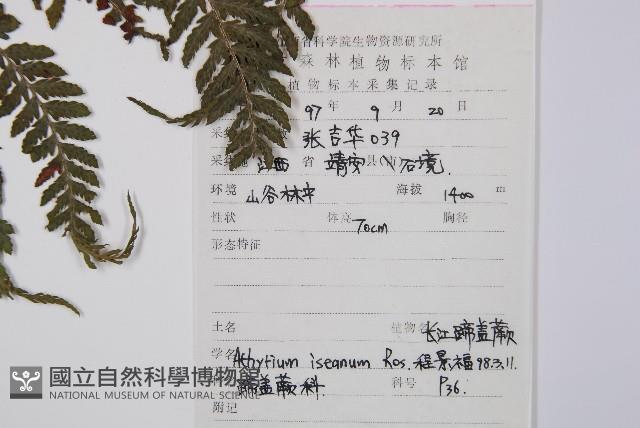 省科学院生物资源研究所
森林植物标本馆
植物标本采集记录
97 年 9 月 20 日
采 张吉华 039
采 江西 省 靖安 县(市) 石境
环境 山谷林中 海拔 1400 m
性状 体高 70cm 胸径
形态特征
土名 植物名 长江蹄盖蕨
学名 Athyrium iseanum Ros. 程景福 98.3.11.
蹄盖蕨科 科号 P36.
附记
國立自然科學博物館
NATIONAL MUSEUM OF NATURAL SCIENCE